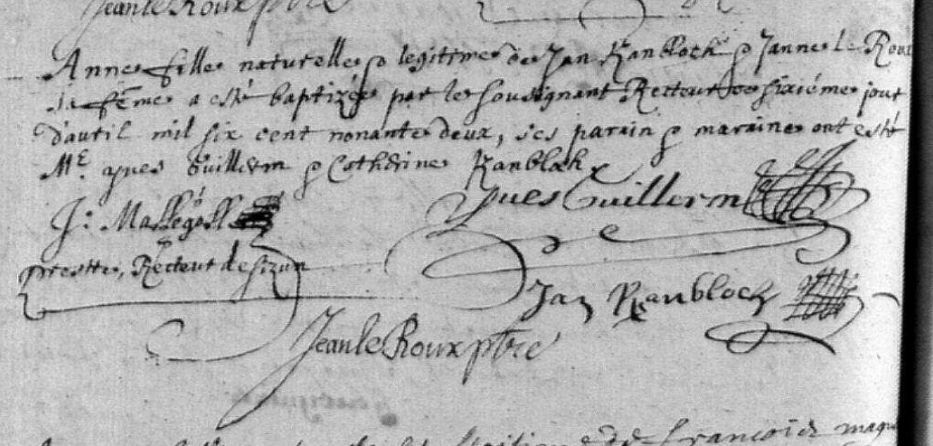 Jean le Roux ptre
Anne fille naturelle & legitime de Jan Kanbloch & Janne le Roux
sa féme a esté baptizée par le sousignant Recteur ce sixiéme jour
d'auril mil six cent nonante deux, ses parain & maraine ont esté
Me. yves Guillerm & Catherine Kanbloch
Yves Guillerm
J: Mallégoll
prestre, Recteur de sizun
Jan Kanbloch
Jean le Roux ptre
François